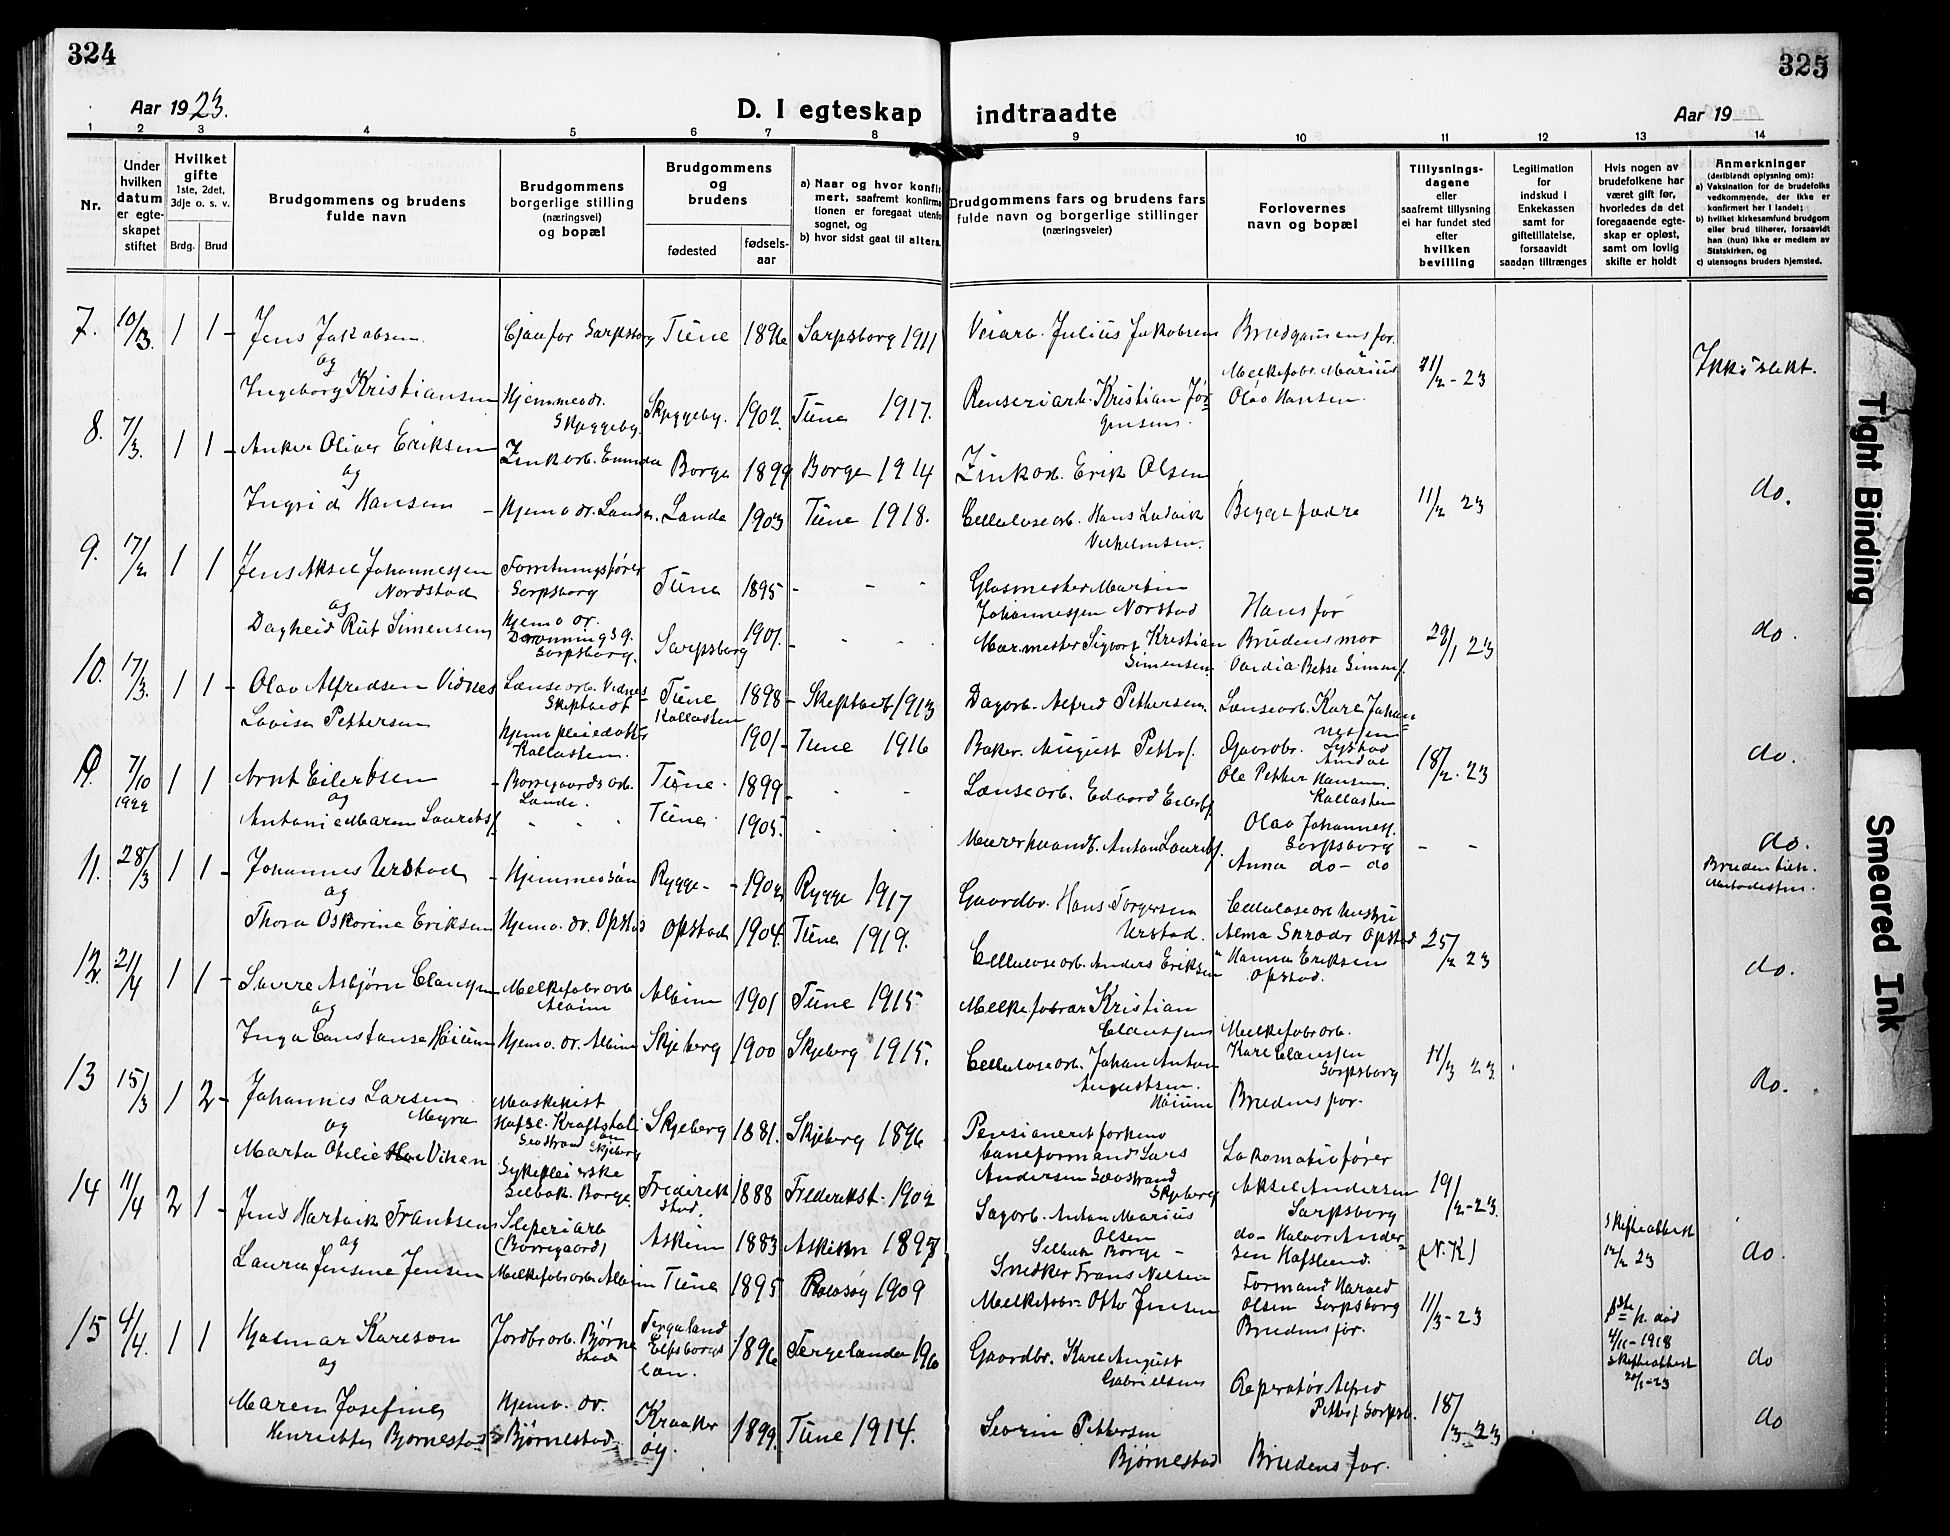 324
325
Aar 1923.
D. I egteskap
indtraadte
Aar 19
1 2 3 4 5 6 7 8 9 10 11 12 13 14
Nr.
Under hvilken datum er egteskapet stiftet
Hvilket gifte
1ste, 2det, 3dje o. s. v.
Brdg. Brud
Brudgommens og brudens fulde navn
Brudgommens borgerlige stilling (næringsvei) og bopæl
Brudgommens og brudens
fødested
fødselsaar
a) Naar og hvor konfirmert, saafremt konfirmationen er foregaat utenfor sognet, og
b) hvor sidst gaat til alters.
Brudgommens fars og brudens fars fulde navn og borgerlige stillinger (næringsveier)
Forlovernes navn og bopæl
Tillysningsdagene eller saafremt tillysning ei har fundet sted efter hvilken bevilling
Legitimation for indskud i Enkekassen samt for giftetillatelse, forsaavidt saadan tiltrænges
Hvis nogen av brudefolkene har været gift før, hvorledes da det foregaaende egteskap er opløst, samt om lovlig skifte er holdt
Anmerkninger (deriblandt oplysning om):
a) Vaksination for de brudefolks vedkommende, der ikke er konfirmert her i landet;
b) hvilket kirkesamfund brudgom eller brud tilhører, forsaavidt han (hun) ikke er medlem av Statskirken, og
c) utensogns bruders hjemsted.
7. 10/3. 1 1 - Jens Jakobsen Sarpsborg Tune 1896 Sarpsborg 1911 Veiarb. Julius Jakobsen Brudgomens far.
og
Ingeborg Kristiansen Hjemmedr. Skyggeby Skyggeby. 1902. Tune 1917. Renseriarb. Kristian Jørgensen. Melkefabr. Marius Olav Hansen. 11/2 - 23 Ikke slekt.
8. 7/3. 1 1 - Anker Oliver Eriksen Zinkarb. Borge 1899 Borge 1914 Zinkarb. Erik Olsen
og
Ingrid Hansen - Hjemv. dr. Lande. Lande 1903 Tune 1918. Cellulosearb. Hans Ludvik Vilhelmsen. Begge fædre 11/2 23 do.
9. 17/2 1 1 Jens Aksel Johannessen Nordstad Forretningsfører Sarpsborg Tune 1895 - - - Glasmester Martin Johannessen Norstad Hans far
og
Dagheid Rut Simensen Hjemv. dr. Dronningsg. Sarpsborg. Sarpsborg 1901. - - - Murmester Sigvart Kristian Simensen Brudens mor 28/1 23 do.
10. 17/3. 1 1 - Olav Alfredsen Vidnes Lænsearb. Vidnes Tune 1898 - Skiptvedt 1913 Dagarb. Alfred Pettersen. Lænsearb. Karl Johannessen
Lovise Pettersen Kallastein. Kallastein 1901 - Tune 1916 Baker. August Petters. Gaardbr. Ole Petter Hansen Kallastein 18/2 - 23 do.
7/10 1922 1 1 Arnt Eilertsen - Borregaards arb. Lande. Tune. 1899 - - - Lænsearb. Edvard Eilerts. Olav Johanness. Sarpsborg
og
Antonie Maren Laurits. " " " Tune. 1905. - - Murerhaandl. Anton Laurits. Anna do - do - - do.
11. 28/3 1 1 - Johannes Urstad - Hjemmedsøn Rygge - - 1902 Rygge 1917 Gaardbr. Hans Torgersen Urstad.
og
Thora Oskarine Eriksen Hjemv. dr. Opstad Opstad 1904. Tune 1919. Cellulosearb. Anders Eriksen Hanna Eriksen Opstad. 25/2 23 do.
12. 21/4 1 1 - Sverre Asbjørn Clausen Melkefabr arb Alvim Alvim 1901 Tune 1915 Melkefabrar Kristian Clausen Melkefabrarb. Karl Clausen Sarpsborg
og
Inga Constanse Høium Hjemv. dr. Alvim Skjeberg 1900 Skjeberg 1915. Cellulosearb. Johan Anton Augustsen. Høium Brudens far. 11/3 23 do.
13 15/3 1 2 - Johannes Larsen Myra Maskinist Hafsl. Kraftstation Skjeberg Skjeberg 1881. Skjeberg 1896 Pensioneret baneformand Lars Andersen Skjeberg Lokomotivfører Aksel Andersen Sarpsborg
og
Marta Otilie Viken Sykepleierske Selbak. Borge. Fredrikstad. 1888 Frederikst. 1902 Sagarb. Anton Marius Olsen Selbak Borge - do - Halvor Andersen Hafslund. 19/2 - 23. (N.K) Skifteattest 12/2 23 do.
14 11/4 2 1 - Jens Hartvik Frantsen Sliperiarb (Borregaard) Askim 1883 Askim 1897 Snedker Frans Nilsen Formand Harald Olsen Sarpsborg
og
Laura Jensine Jensen Melkefabr arb. Alvim Tune 1895 Rolvsøy 1909 Melkefabr. Otto Jensen Brudens far. 11/3 - 23 død 4/11 - 1918 Skifteattest do
15 4/4. 1 1 Hjalmar Karlson Jordbr arb. Bjørnestad Elfsborgs län. 1896 Gaardbr. Karl August Gabrielsen Reparatør Alfred Petters. Sarpsb.
og
Maren Josefine Henriette Bjørnestad Hjemv. dr. Bjørnestad Kraakerøy. 1899. Tune 1914. Severin Pettersen Bjørnestad Brudens far. 18/3 - 23 do
Tight Binding
Smeared Ink